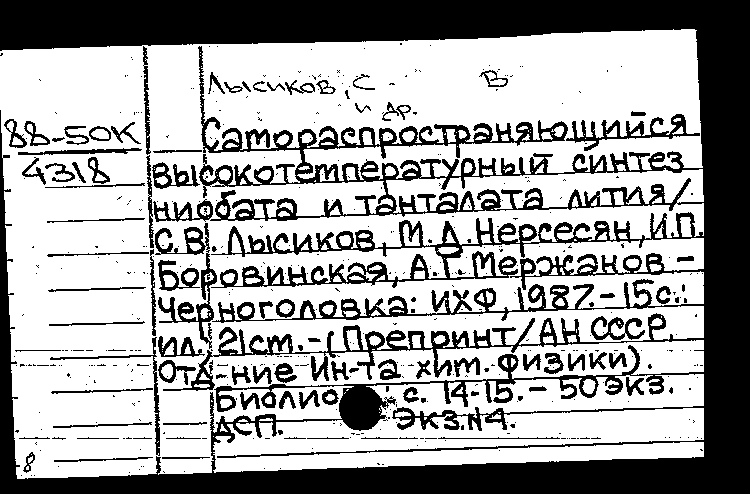 Лысиков, С. В
и др.
88-50К
4318
Самораспространяющийся
высокотемпературный синтез
ниобата и танталата лития/
С.В. Лысиков, М.Д. Нерсесян, И.П.
Боровинская, А.Г. Мержанов –
Черноголовка: ИХФ, 1987.-15с.:
ил.; 21см.-(Препринт/АН СССР,
Отд-ние Ин-та хим. физики).
Библио с. 14-15. – 50экз.
ДСП. Экз.№4.
8